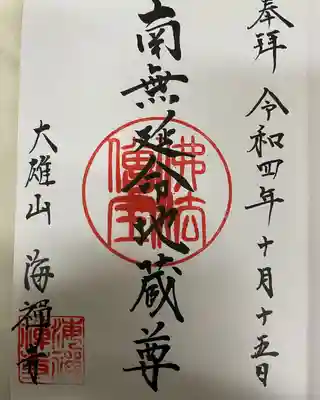 奉拝 令和四年十月十五日
南無延命地蔵尊
大雄山 海禅寺
佛法僧宝